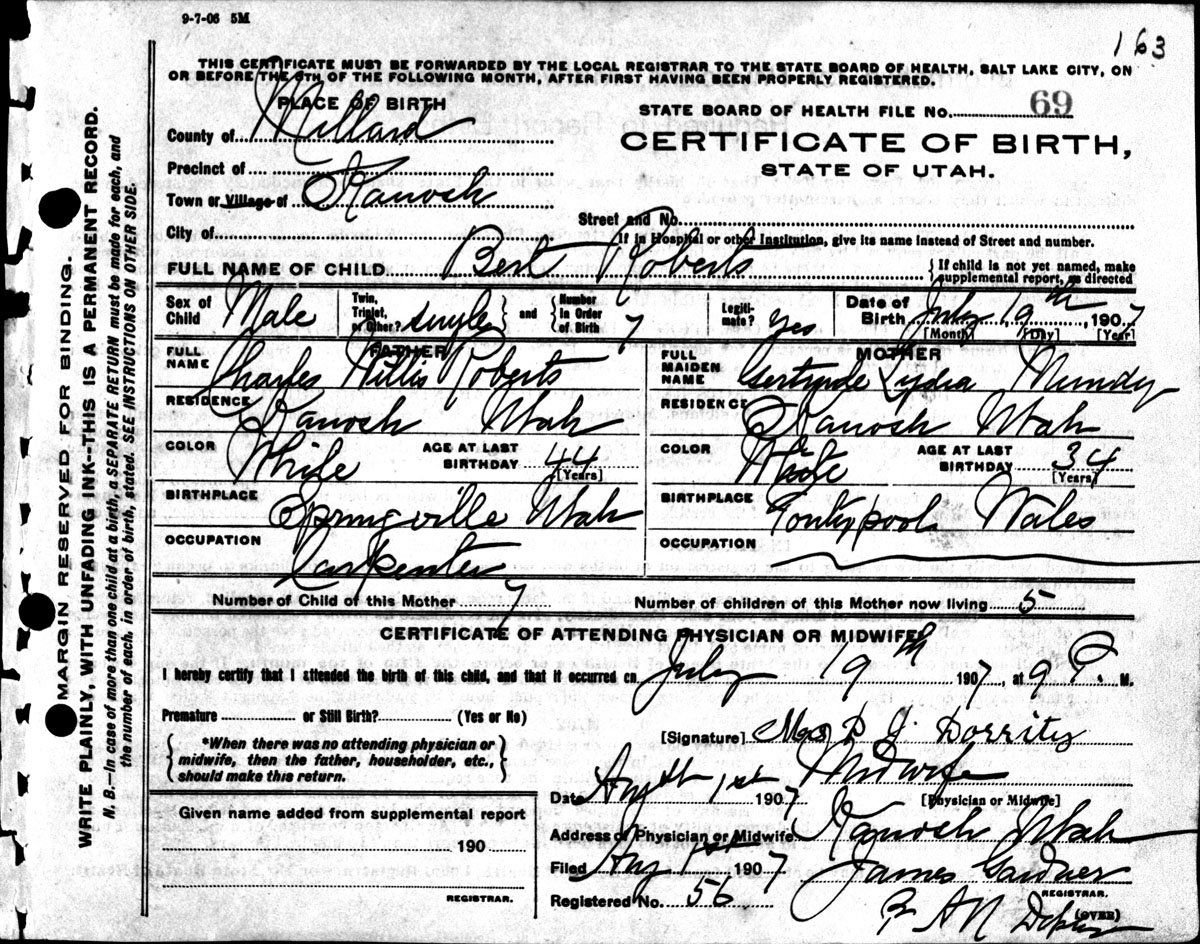 9-7-06 5M
163
THIS CERTIFICATE MUST BE FORWARDED BY THE LOCAL REGISTRAR TO THE STATE BOARD OF HEALTH, SALT LAKE CITY, ON
OR BEFORE THE 5TH OF THE FOLLOWING MONTH, AFTER FIRST HAVING BEEN PROPERLY REGISTERED.
PLACE OF BIRTH
STATE BOARD OF HEALTH FILE NO. 69
County of Millard
CERTIFICATE OF BIRTH,
STATE OF UTAH.
Precinct of
Town or Village of Kanosh
Street and No.
City of
If in Hospital or other Institution, give its name instead of Street and number.
FULL NAME OF CHILD Bert Roberts
{If child is not yet named, make
supplemental report, as directed
Sex of Child Male
Twin, Triplet, or Other? single and {Number in Order of Birth 7
Legitimate? yes
Date of Birth July 19th, 1907
[Month] [Day] [Year]
FATHER
FULL NAME Charles Willis Roberts
RESIDENCE Kanosh Utah
COLOR White AGE AT LAST BIRTHDAY 44 [Years]
BIRTHPLACE Springville Utah
OCCUPATION Carpenter
MOTHER
FULL MAIDEN NAME Gertrude Lydia Mundy
RESIDENCE Kanosh Utah
COLOR White AGE AT LAST BIRTHDAY 34 [Years]
BIRTHPLACE Pontypool Wales
OCCUPATION
Number of Child of this Mother 7 Number of children of this Mother now living 5
CERTIFICATE OF ATTENDING PHYSICIAN OR MIDWIFE
I hereby certify that I attended the birth of this child, and that it occurred on July 19th 1907, at 9 P. M.
Premature or Still Birth? (Yes or No)
{*When there was no attending physician or
midwife, then the father, householder, etc.,
should make this return.}
Given name added from supplemental report
190
REGISTRAR.
[Signature] Mrs B J Dorrity
Midwife
Date 1st 1907 [Physician or Midwife]
Address of Physician or Midwife Kanosh Utah
Filed Aug 1st 1907 James Gardner
REGISTRAR.
Registered No. 56
AN Deputy
(OVER)
MARGIN RESERVED FOR BINDING.
WRITE PLAINLY, WITH UNFADING INK--THIS IS A PERMANENT RECORD.
N. B.—In case of more than one child at a birth, a SEPARATE RETURN must be made for each, and
the number of each, in order of birth, stated. SEE INSTRUCTIONS ON OTHER SIDE.